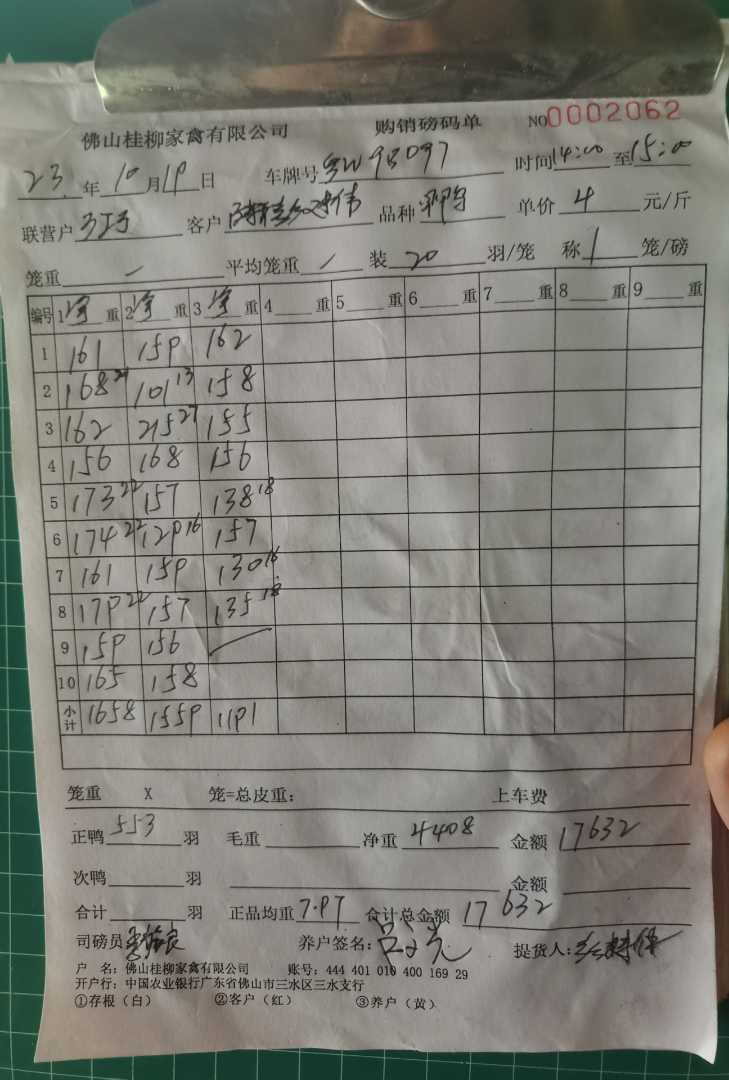 佛山桂柳家禽有限公司 购销磅码单 NO0002062
23年10月19日 车牌号粤W9B097 时间14:00至15:00
联营户 客户 品种 单价4元/斤
笼重 / 平均笼重 / 装20羽/笼 称1笼/磅
编号 1 重 2 重 3 重 4 重 5 重 6 重 7 重 8 重 9 重
1 161 159 162
2 168 21 101 13 158
3 162 215 27 155
4 156 168 156
5 173 22 157 138 18
6 174 22 129 16 157
7 161 159 130 16
8 179 22 157 135 18
9 159 156
10 165 158
小计 1658 1559 1191
笼重 X 笼=总皮重: 上车费
正鸭553羽 毛重 净重4408 金额17632
次鸭 羽 金额
合计 羽 正品均重7.97 合计总金额17632
司磅员 养户签名: 提货人:
户 名: 佛山桂柳家禽有限公司 账号: 444 401 010 400 169 29
开户行: 中国农业银行广东省佛山市三水区三水支行
①存根(白) ②客户(红) ③养户(黄)